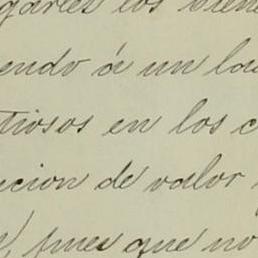 garles los biene
endo á un la
tiosos en los c
cion de valor
pues que no